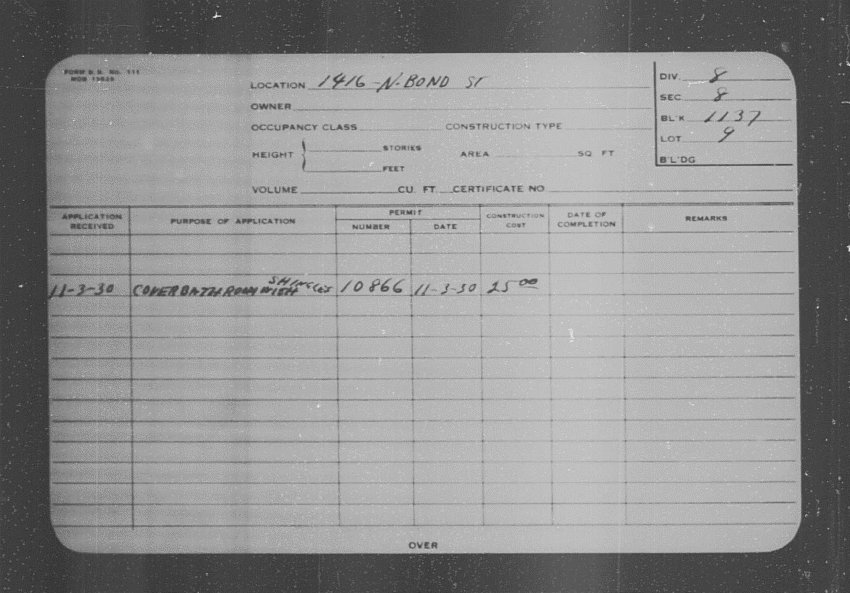 FORM B. B. No. 111
MDB 19829
LOCATION 1416-N-BOND ST
OWNER
OCCUPANCY CLASS CONSTRUCTION TYPE
HEIGHT { STORIES AREA SQ FT
FEET
VOLUME CU. FT. CERTIFICATE NO
DIV. 8
SEC 8
BL'K 1137
LOT 9
B'L'DG
APPLICATION RECEIVED PURPOSE OF APPLICATION PERMIT NUMBER DATE CONSTRUCTION COST DATE OF COMPLETION REMARKS
11-3-30 COVER BATH ROOM WITH SHINGLES 10866 11-3-30 25 00
OVER